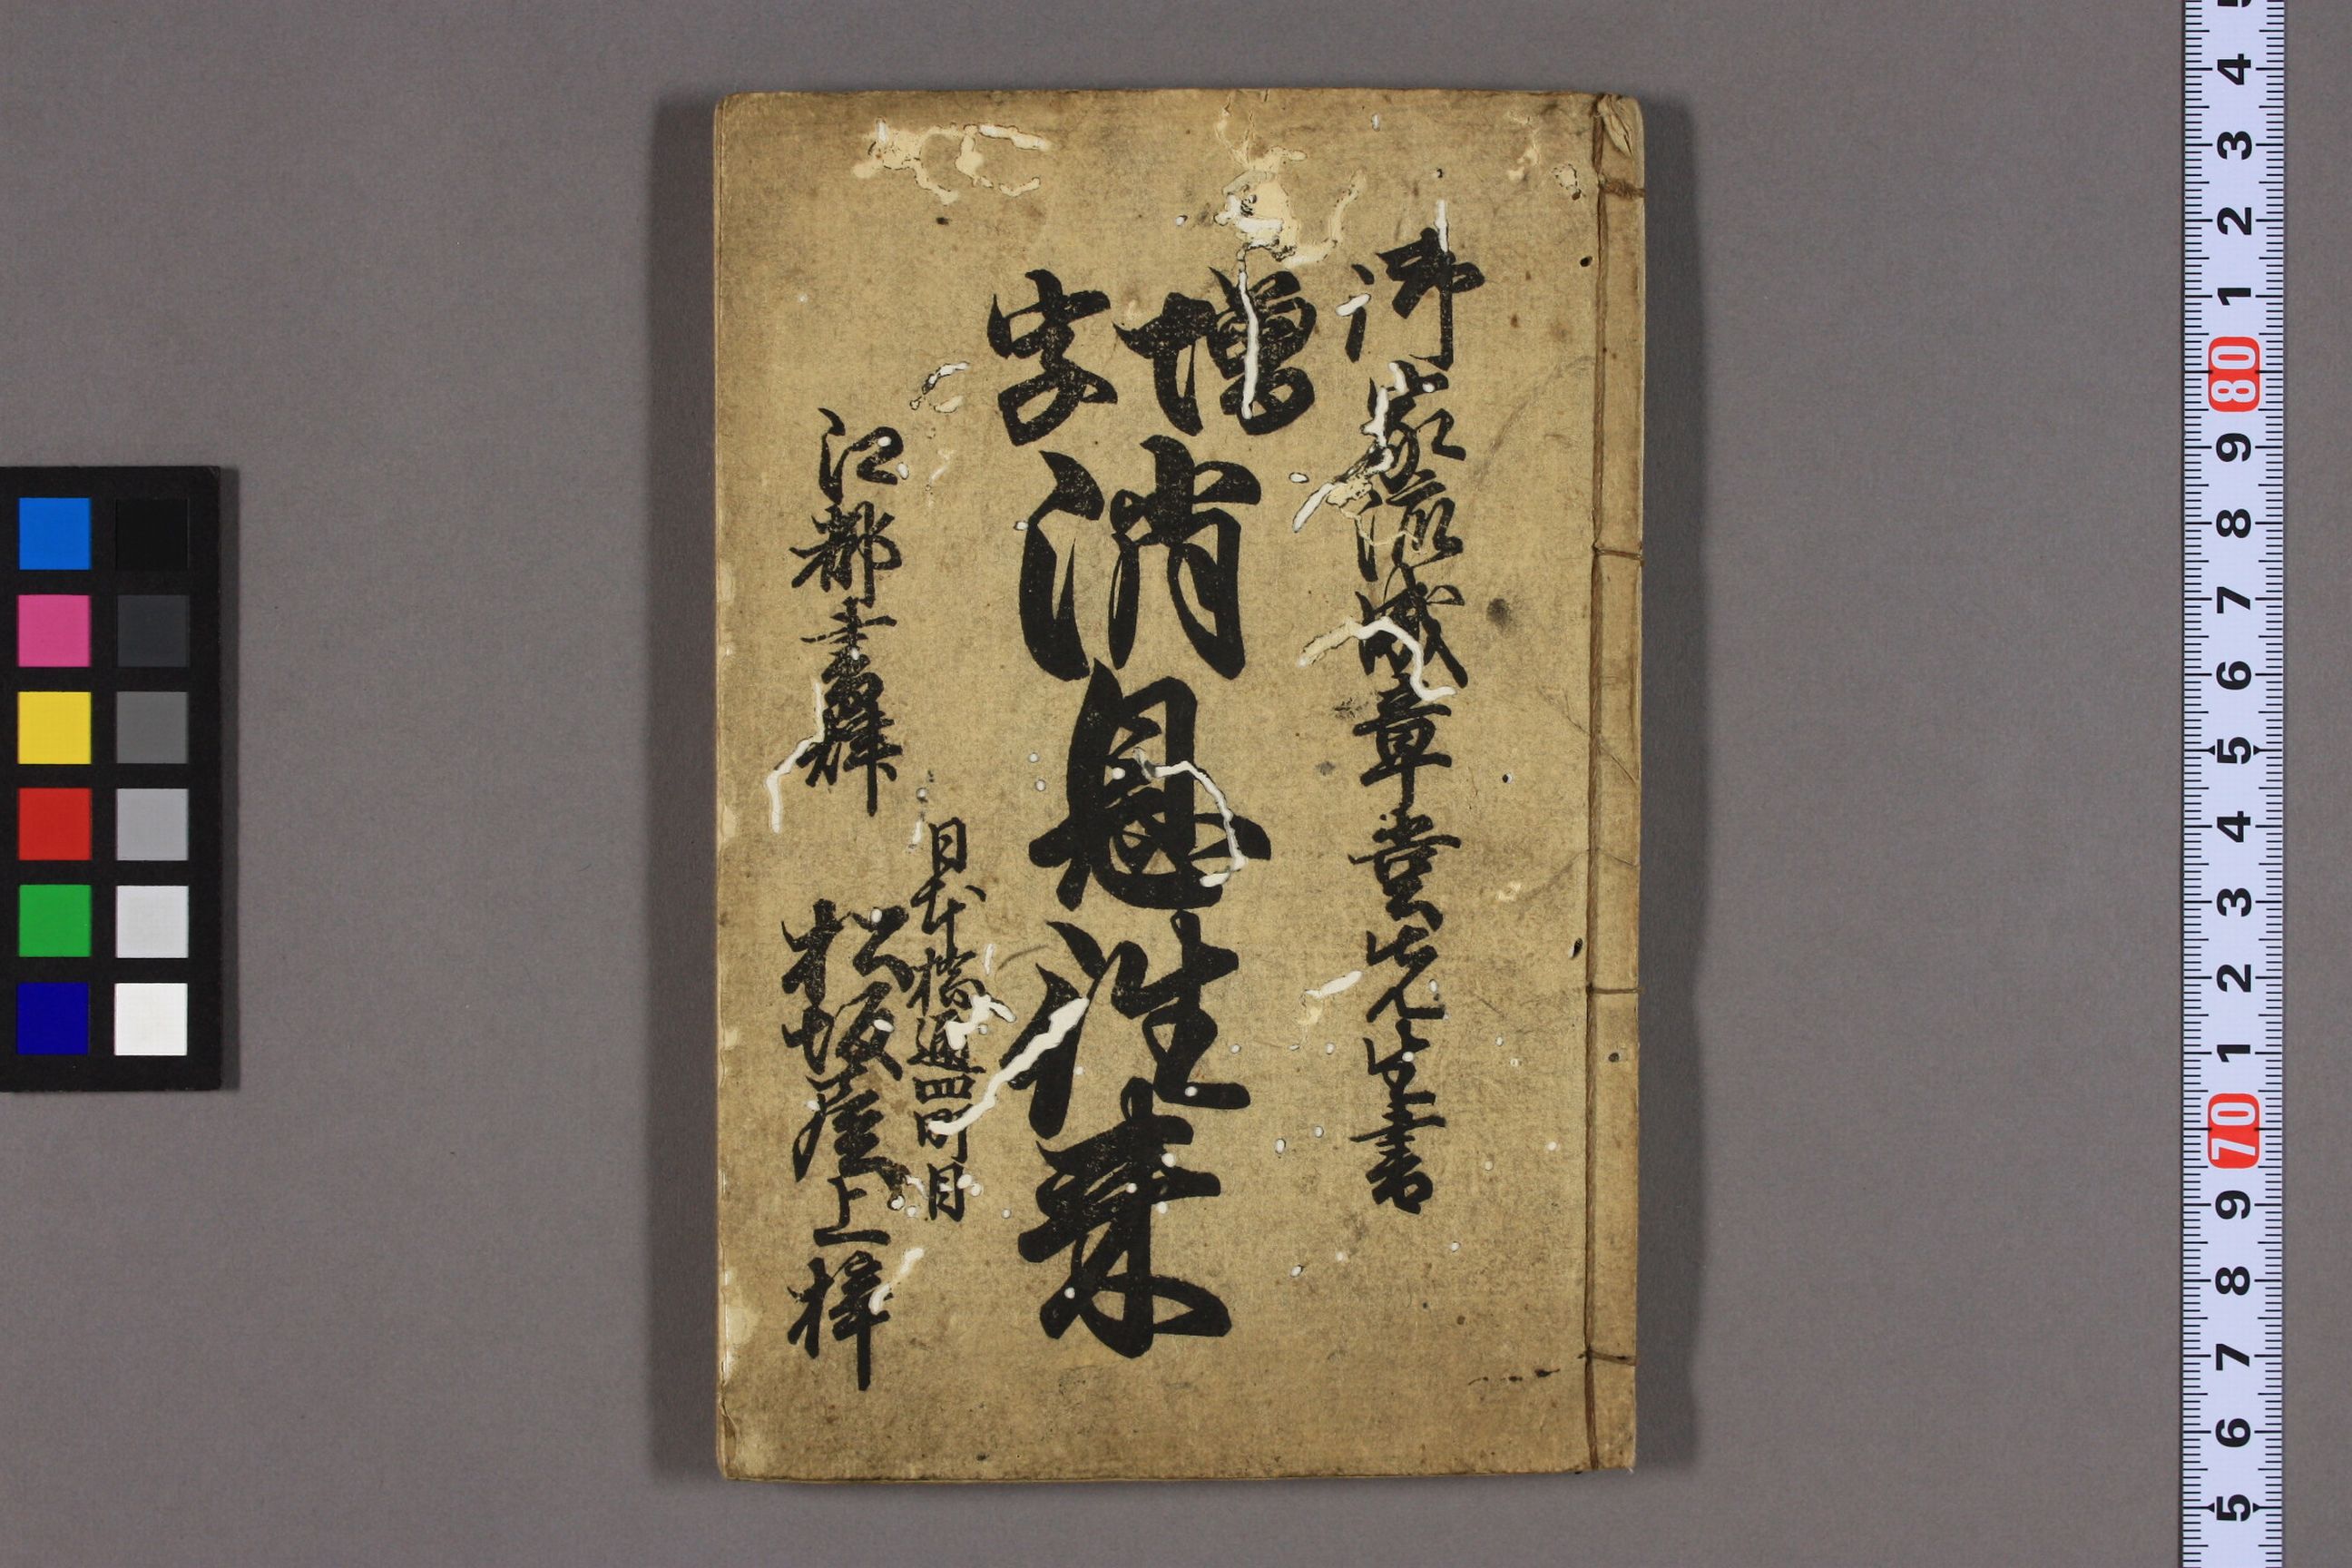 御家流成章堂先生書
増字
消息往来
日本橋通四町目
江都書肆
松坂屋上梓
5 4 3 2 1 80 9 8 7 6 5 4 3 2 1 70 9 8 7 6 5